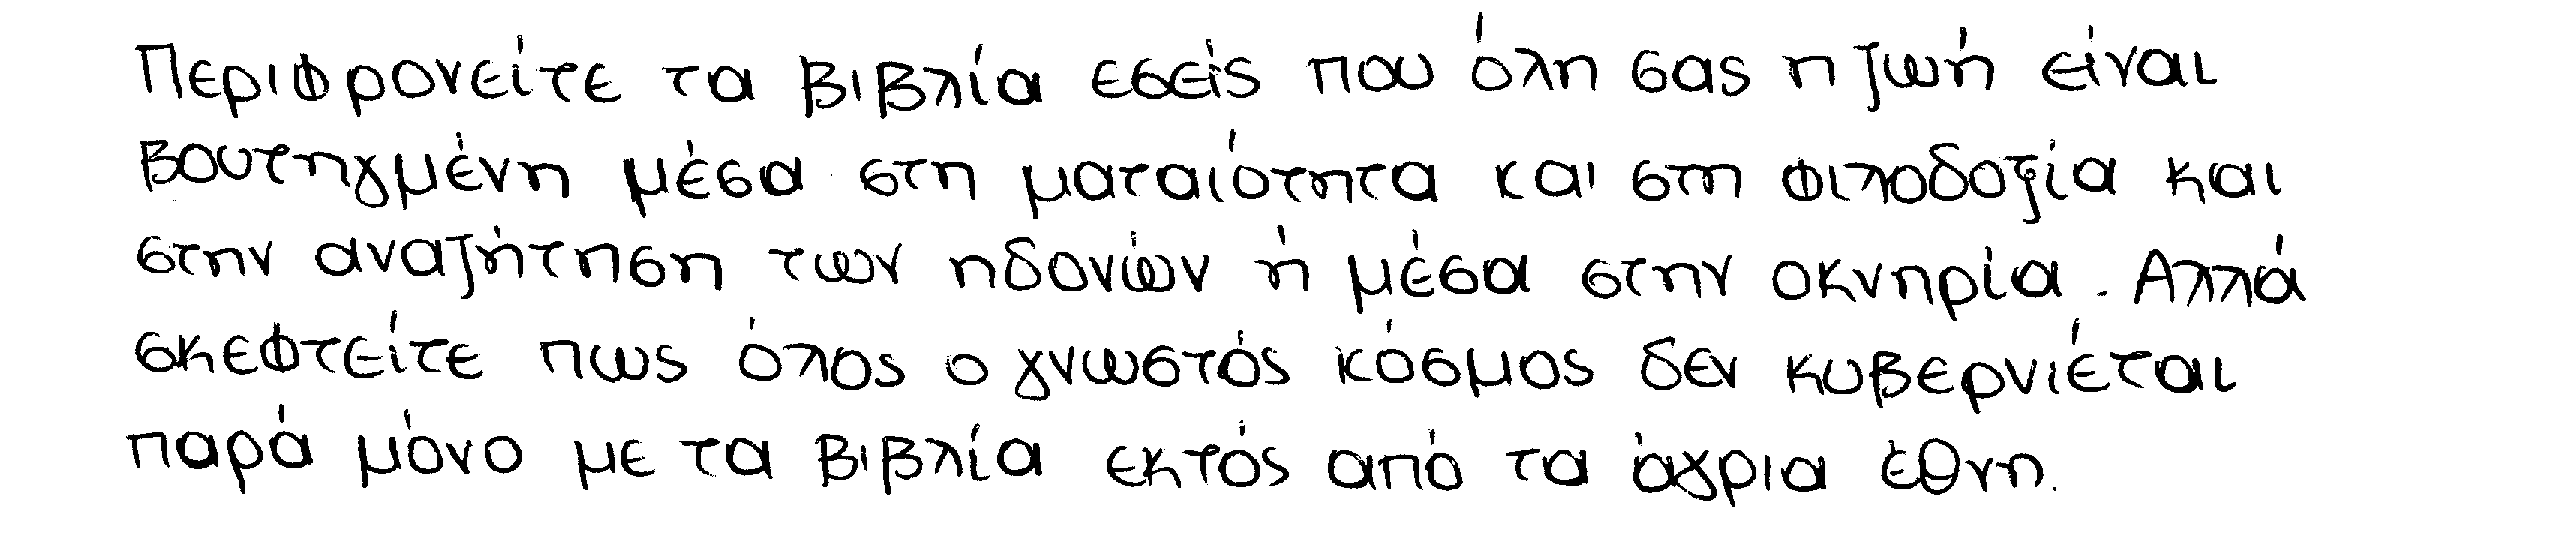 Περιφρονείτε τα βιβλία εσείς που όλη σας η ζωή είναι
βουτηγμένη μέσα στη ματαιότητα και στη φιλοδοξία και
στην αναζήτηση των ηδονών ή μέσα στην οκνηρία. Αλλά
σκεφτείτε πως όλος ο γνωστός κόσμος δεν κυβερνιέται
παρά μόνο με τα βιβλία εκτός από τα άγρια έθνη.